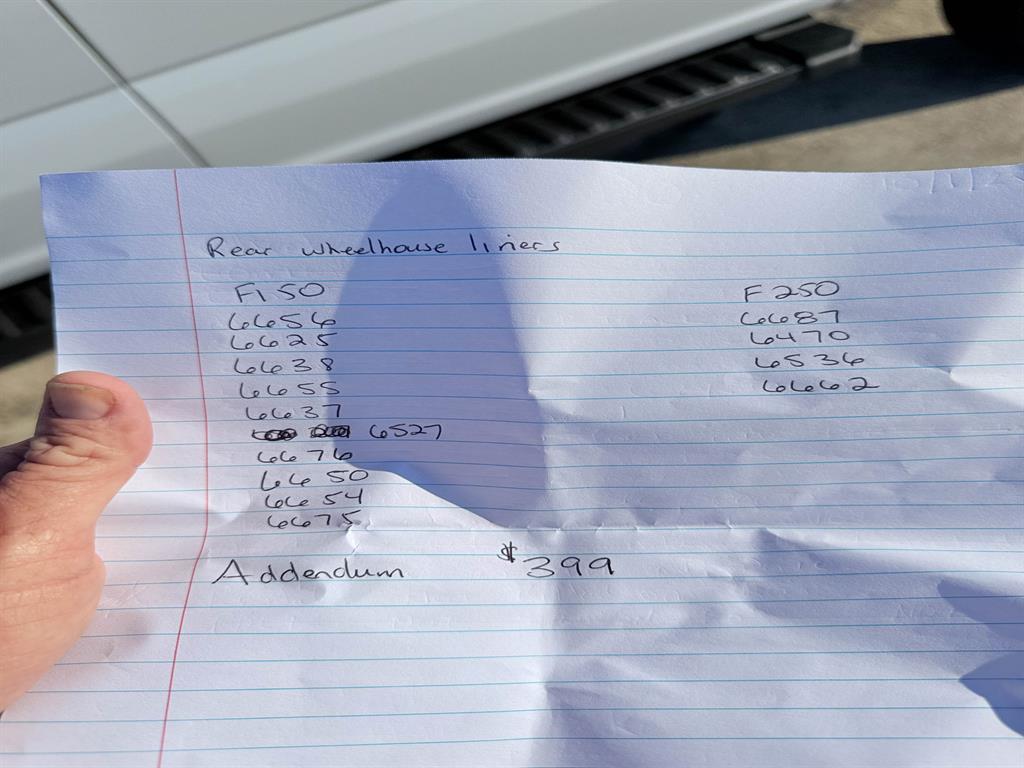 Rear wheelhouse liners
F150
6656
6625
6638
6655
6637
6527
6676
6650
6654
6675
F250
6687
6470
6536
6662
Addendum $399